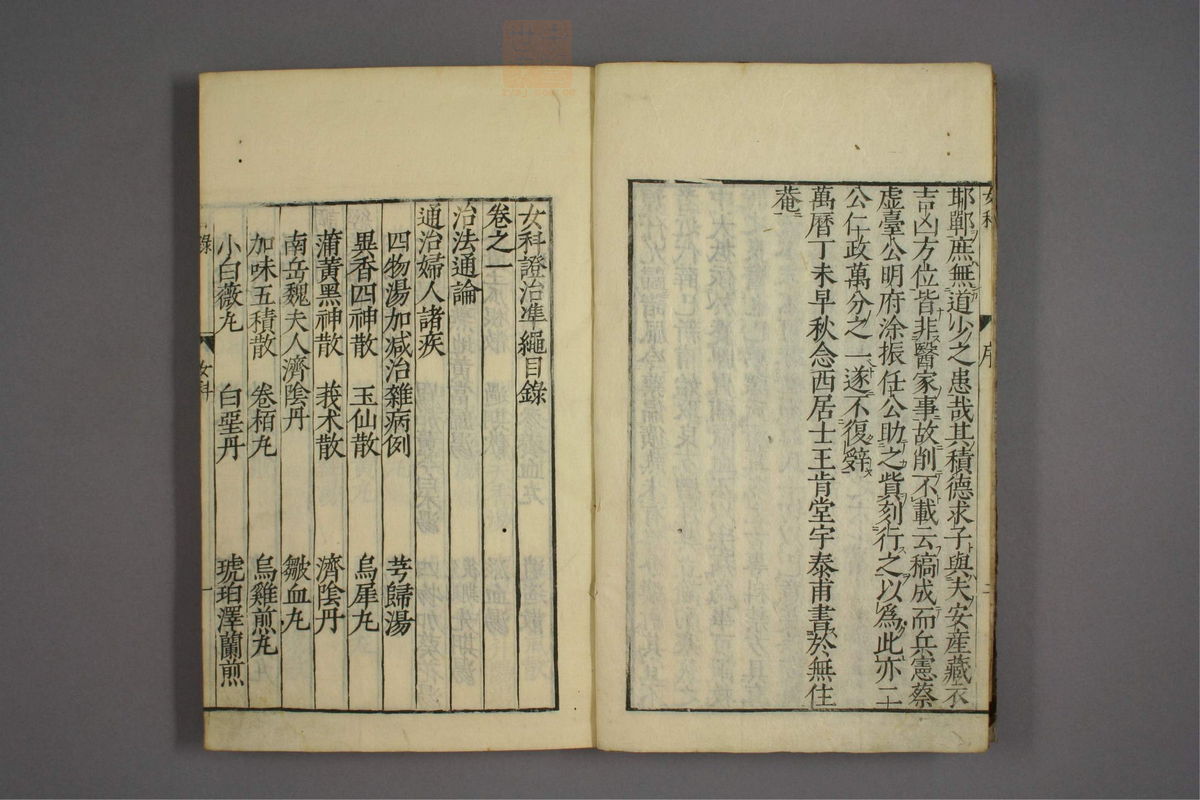 耶鄲庶無道少之患哉其積德求子與夫安産藏衣
吉凶方位皆非醫家事故削不載云稿成而兵憲蔡
虚臺公明府涂振任公助之貲刻行之以爲此亦二
公仁政萬分之一遂不復辭
萬曆丁未早秋念西居士王肯堂宇泰甫書於無住
菴
女科 序 二
女科證治準繩目錄
卷之一
治法通論
通治婦人諸疾
四物湯加减治雜病例 芎歸湯
異香四神散 玉仙散 烏犀丸
蒲黄黑神散 莪术散 濟陰丹
南岳魏夫人濟陰丹 皺血丸
加味五積散 卷栢丸 烏雞煎丸
小白薇丸 白堊丹 琥珀澤蘭煎
錄 女科 一